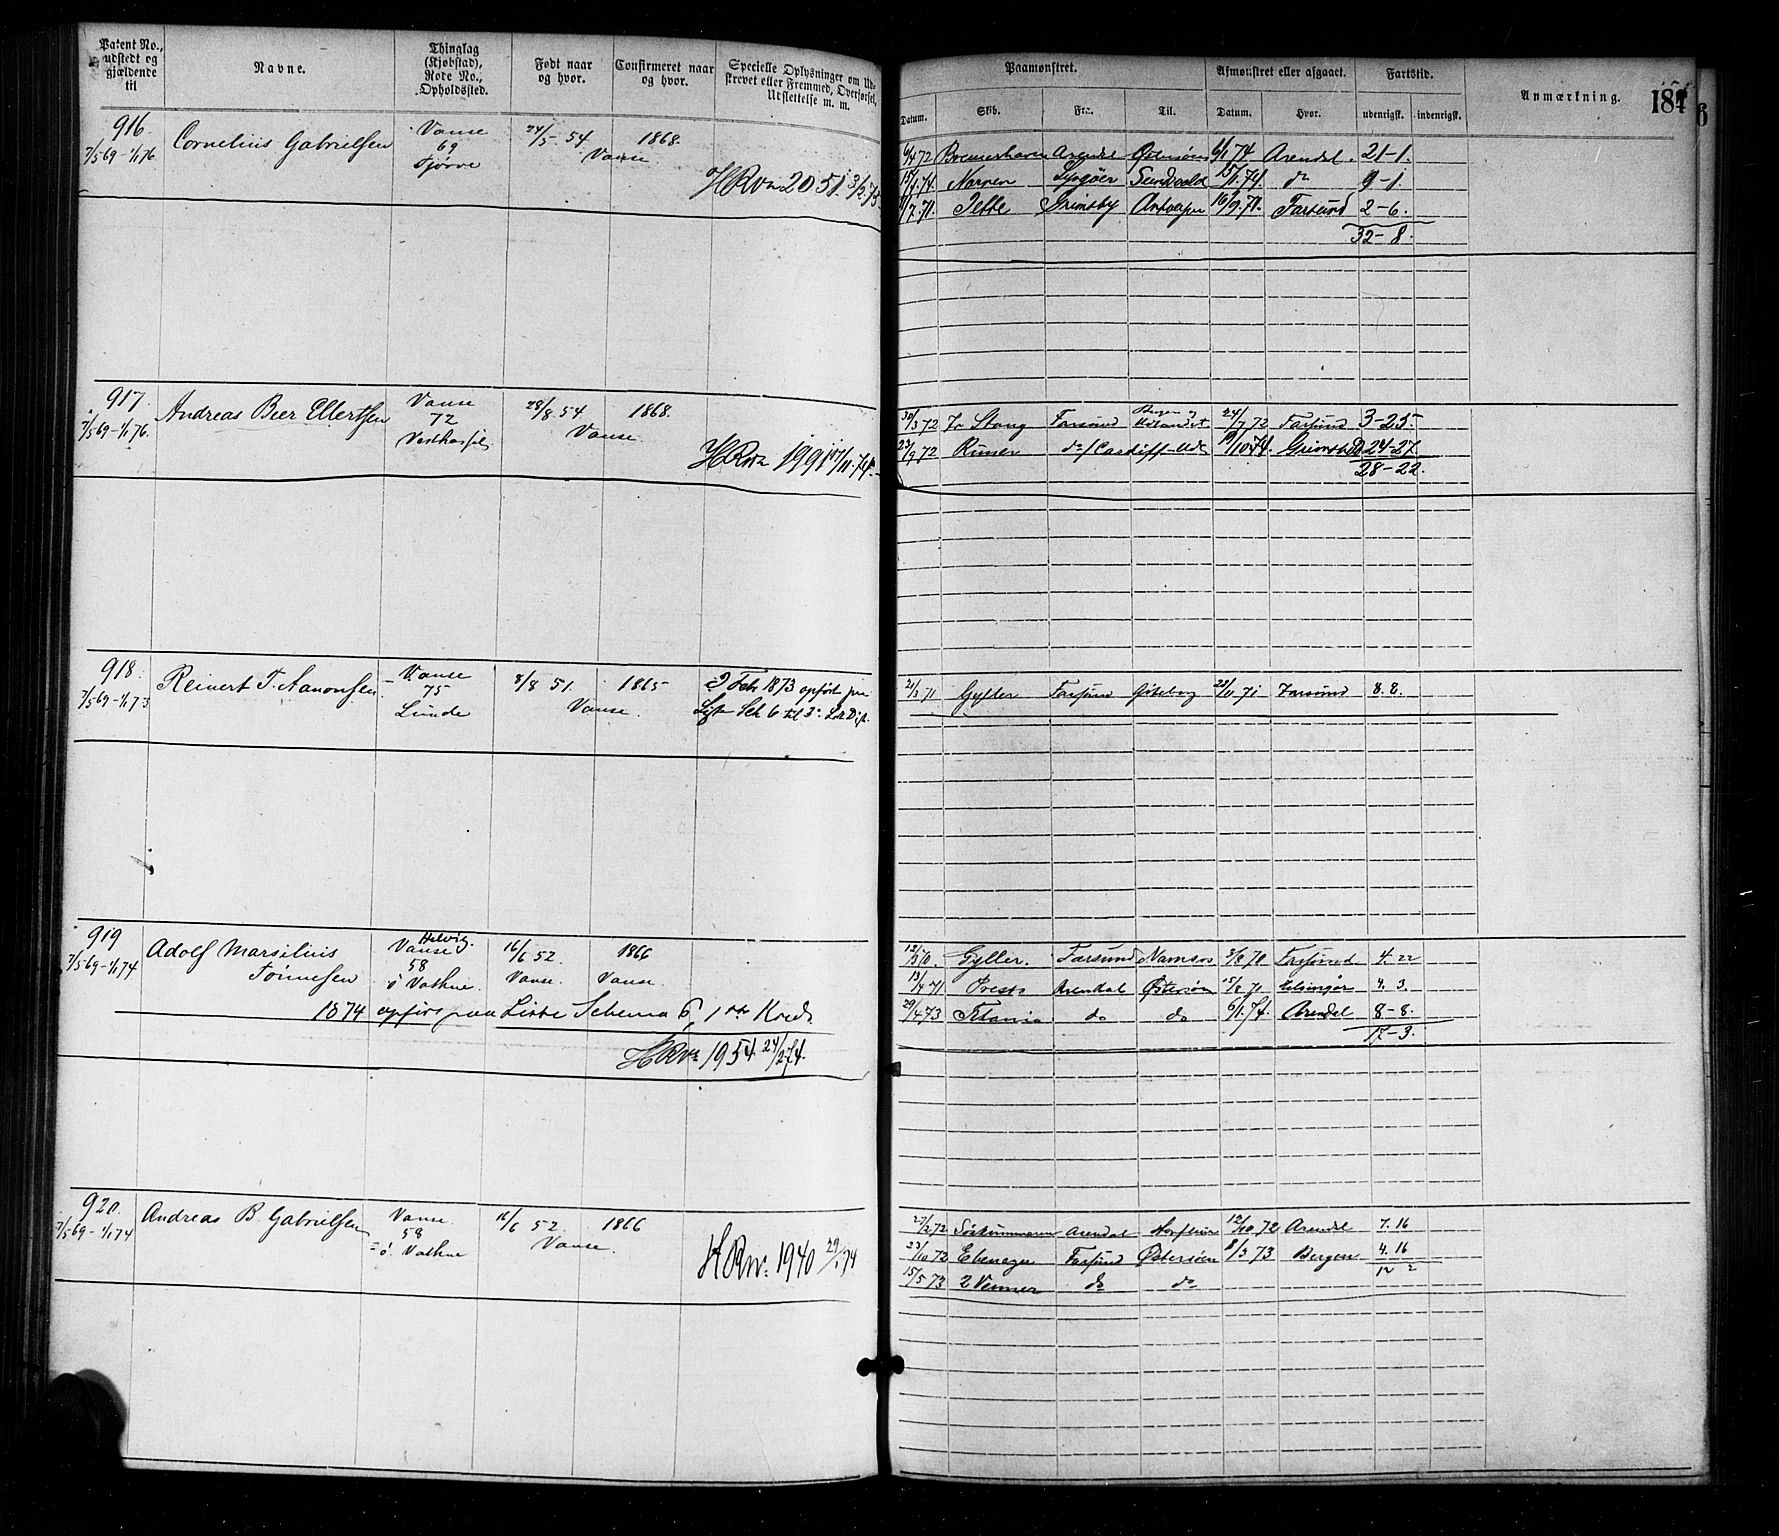 Patent No., udstedt og gjældende til
Navne.
Thinglag (Kjøbstad), Rode No., Opholdssted.
Født naar og hvor.
Confirmeret naar og hvor.
Specielle Oplysninger om Udskrevet eller Fremmed, Overførsel, Udslettelse m. m.
Paamønstret.
Afmønstret eller afgaaet.
Fartstid.
Anmærkning.
184
6
Datum.
Skib.
Fra.
Til.
Datum.
Hvor.
udenrigsk.
indenrigsk.
916
7/5 69 - 1/1 76
Cornelius Gabrielsen
Vanse
69
Tjørve
24/5 - 54
1868.
Vanse
HRvn 2051 3/2 75
6/4 72 Bremerhaven Arendal Østersøen 6/1 74 Arendal. 21-1.
Lyngøer Sundsvald do 9-1.
Grimsby Antverpen Farsund 2-6.
32-8.
917.
7/5 69 - 1/1 76.
Andreas Beer Ellertsen
Vanse
72
Vesthassel
28/8 54
1868.
Vanse.
30/3 72 Farsund Bergen og Udlandet 24/7 72 Farsund 3-25.
23/9 72 do/Cardiff-Udl 24-27
28-22.
918.
7/5 69 - 1/1 73
Reinert T. Aanonsen
Vanse
75
Lunde
8/8 51.
1865
Vanse.
2 Feb 1873 opført paa
21/3 71 Gyller Farsund Gøteborg 23/11 71 Farsund 8.8.
919
7/5 69 - 1/1 74
Adolf Marsilius
Tønnesen
Helvig.
Vanse
58
ö Vathne
16/6 52.
Vanse.
1866
Vanse.
1874 opført paa Liste Schema 6, 1ste Kreds
HRvn 1954 24/2 74.
Gyller. Farsund Namsos 3/8 70 Farsund 4.22
13/4 71 Presto Arendal Østersøen Helsingør 4.3.
29/4 73 Titania do do 6/1 74. Arendal 8-8.
17-3.
920.
7/5 69 - 1/1 74
Andreas B. Gabrielsen
Vanse.
58
ö. Vathne
16/6 52.
1866
Vanse.
HRvn. 1940 29/1 74
27/2 72 Arendal 12/10 72 Arendal 7.16
23/10 72 Ebenezer Farsund Østersøen 8/3 73 Bergen 4.16
12 2
15/5 73 2 Venner do do